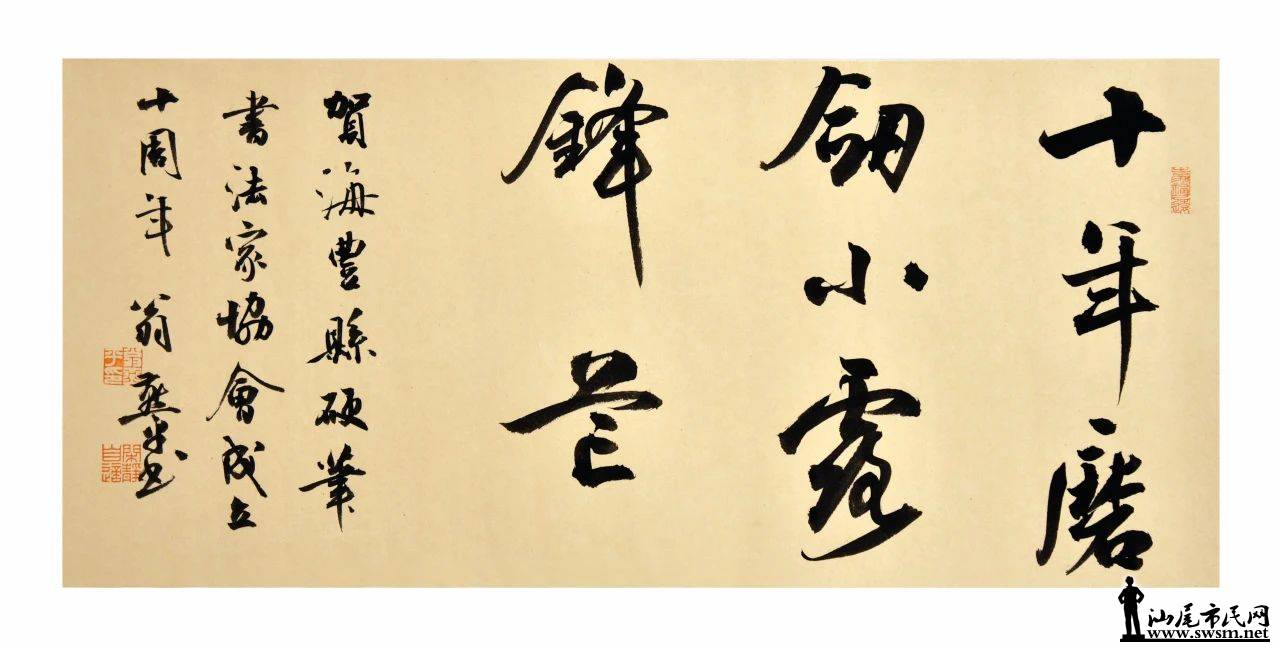 十年磨
劒小露
鋒芒
賀海豐縣硬筆
書法家協會成立
十周年 翁燕生书
閑靜
自適
汕尾市民网
www.swsm.net